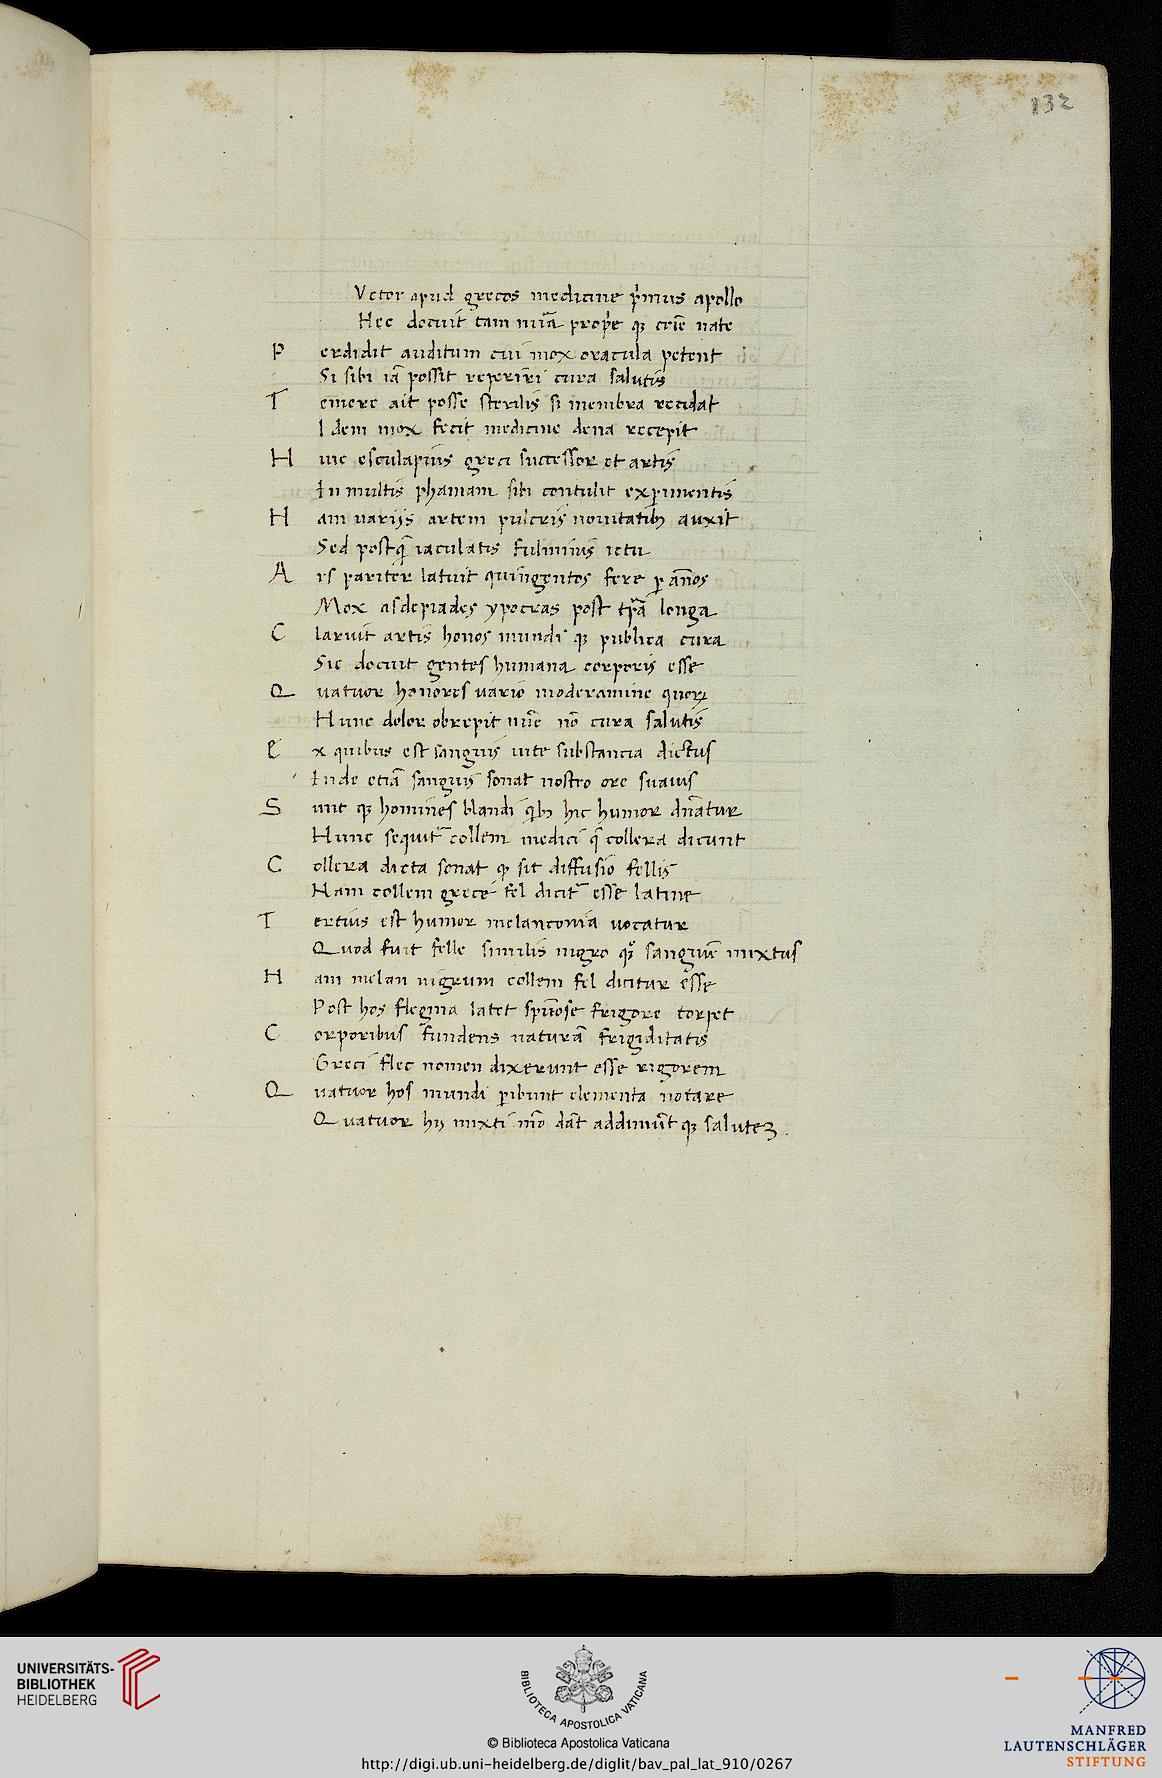 132
Vctor apud grecos medicine p̄mus apollo
Hec docuit tam nr̄a prop̄e qꝫ cri͞e nate
P erdidit auditum cui mox oracula petent
Si sibi iā possit reperiri cura salutis
T emere ait posse sterilis si membra recidat
Idem mox fecit medicine dena recepit
H uic esculapius greci successor et artis
In multis phamam sibi contulit exp̱imentis
H am uariis artem pulcris nouitatibꝫ auxit
Sed postq̄ iaculatis fulminis ictu
A rs pariter latuit quingentos fere p̱ an̄os
Mox asclepiades ypocras post tp̄ra longa
C laruit artis honos mundi qꝫ publica cura
Sic docuit gentes humana corporis esse
Q uatuor honores uario moderamine quoꝝ
Hunc dolor obrepit nūc nō cura salutis
E x quibus est sanguis uite substancia dictus
Inde etiā sanguis sonat nostro ore suauis
S unt qꝫ homines blandi qibꝫ hic humor dn̄atur
Hunc sequit᷑ collem medici q̄ collera dicunt
C ollera dicta sonat ꝙ sit diffusio fellis
Nam collem grece fel dicit᷑ esse latine
T ertius est humor melanconia uocatur
Quod fuit felle similis nigro qꝫ sanguīe mixtus
H am melan nigrum collem fel dicitur esse
Post hos flegma latet spūose frigore torpet
C orporibus fundens naturā frigiditatis
Greci flec nomen dixerunt esse rigorem
Q uatuor hos mundi p̱ibunt elementa notare
Quatuor hij mixti mō dāt addimūt qꝫ salutem.
UNIVERSITÄTS-
BIBLIOTHEK
HEIDELBERG
BIBLIOTECA APOSTOLICA VATICANA
© Biblioteca Apostolica Vaticana
http://digi.ub.uni-heidelberg.de/diglit/bav_pal_lat_910/0267
MANFRED
LAUTENSCHLÄGER
STIFTUNG